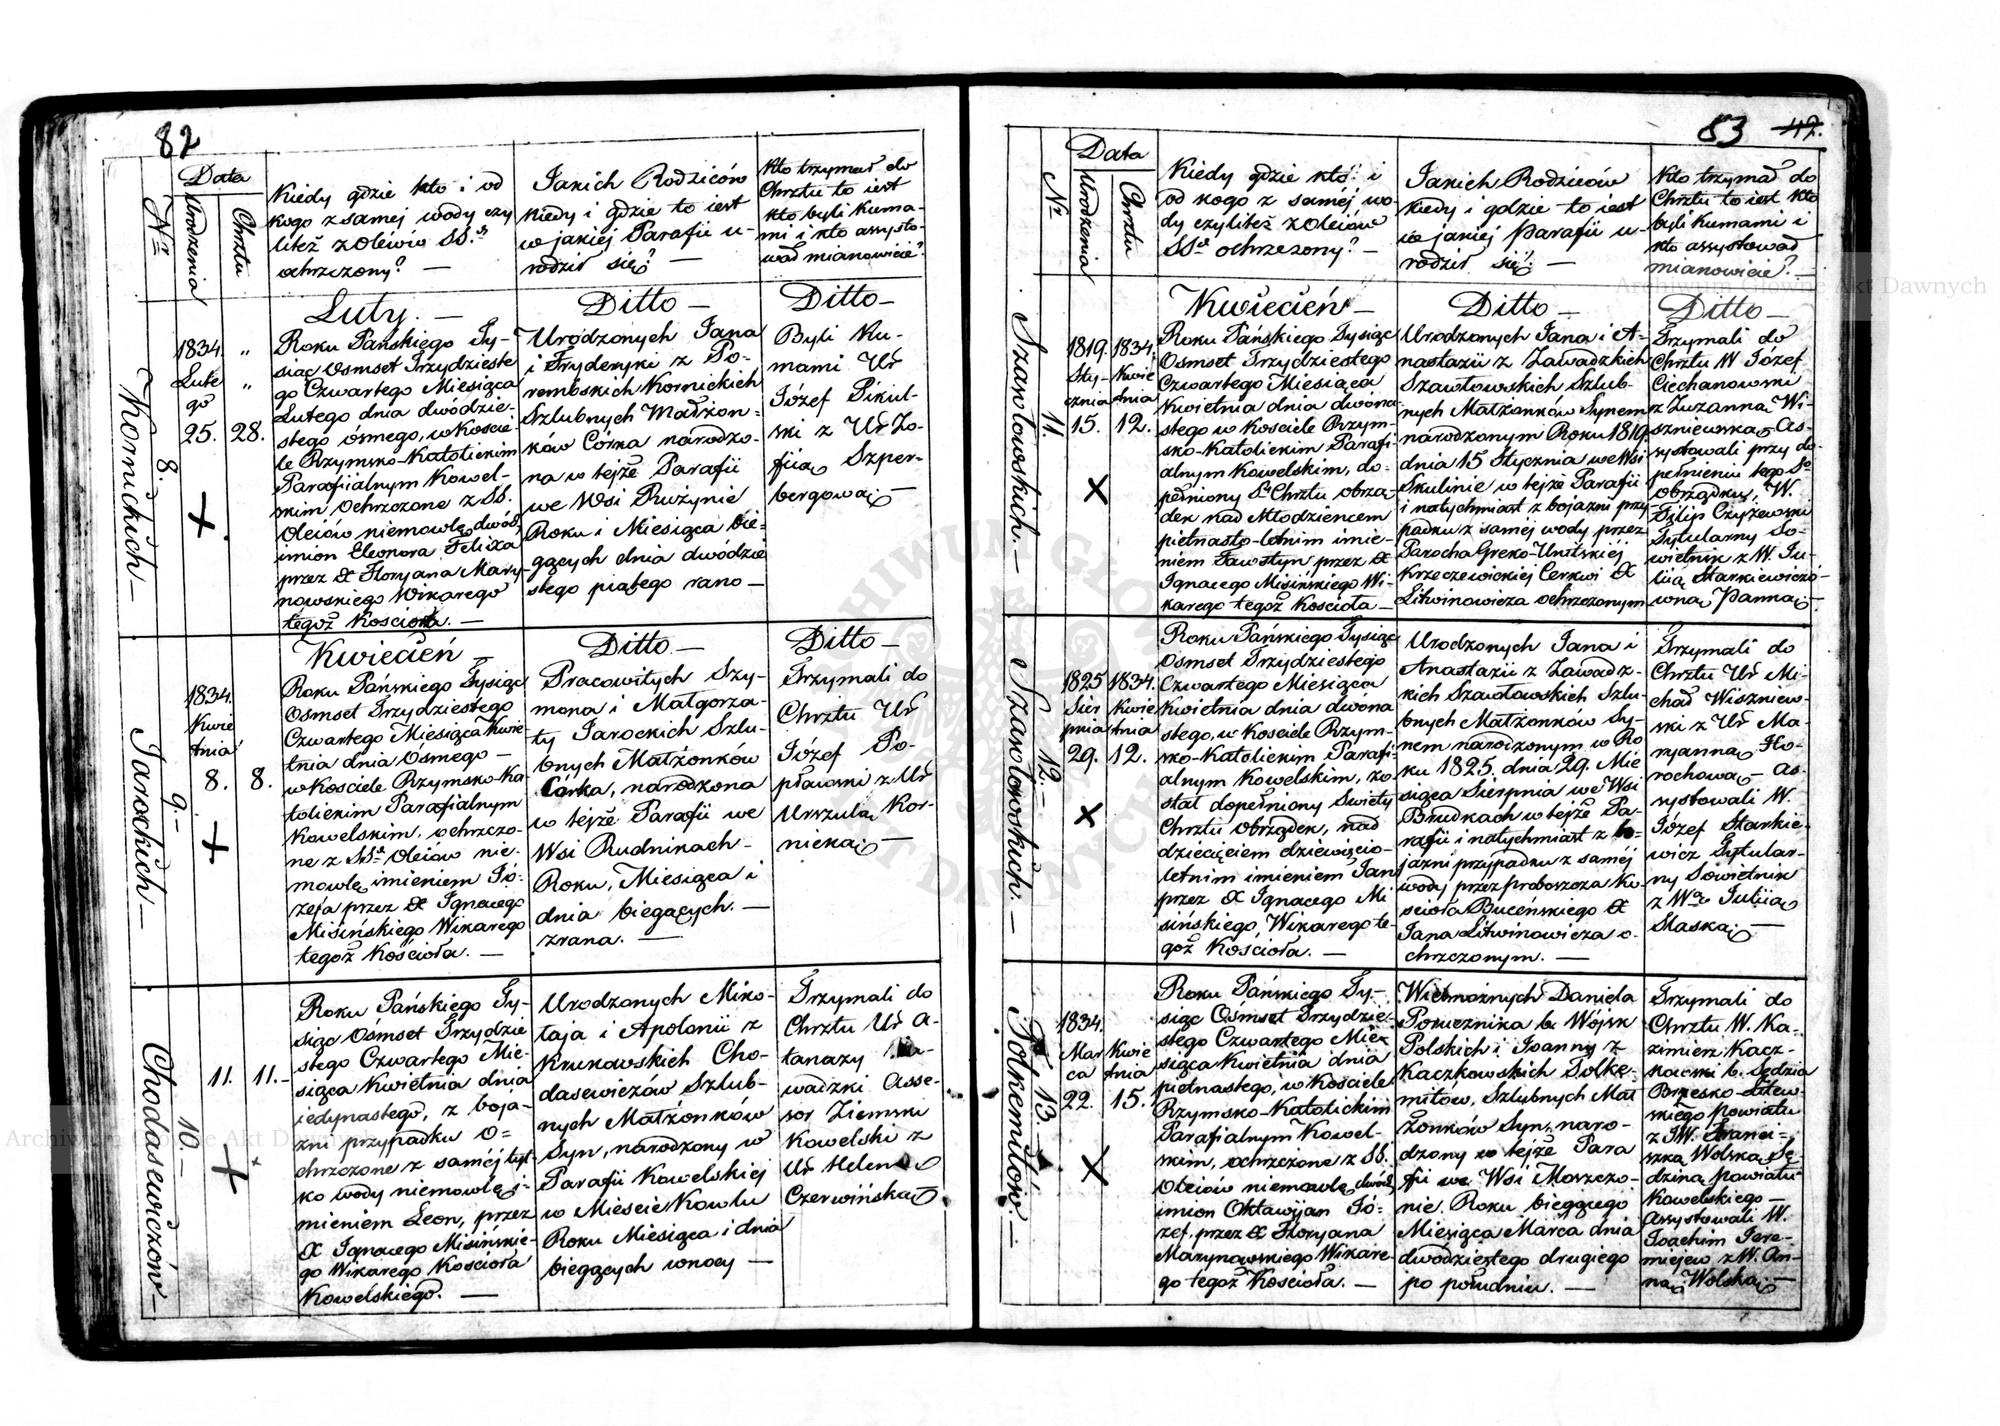 82
Data
Nr
Urodzenia
Chrztu
Kiedy gdzie kto i od
kogo z samej wody czy
liteż z Olejów SS.
ochrzczony? —
Jakich Rodziców
kiedy i gdzie to iest
w jakiej Parafii u-
rodził się? —
Kto trzymał do
Chrztu to iest
kto byli Kuma-
mi i kto assysto-
wał mianowicie?
Kornickich —
8.
1834.
Lute
go
25.
"
"
28.
Luty. —
Roku Pańskiego Ty-
siąc Osmset Trzydzieste
go Czwartego Miesiąca
Lutego dnia dwódzie-
stego ósmego, w Koście-
le Rzymsko-Katolickim
Parafialnym Kowel-
skim Ochrzczone z SS.
Oleiów niemowlę dwóch
imion Eleonora Felixa
przez X Floryana Mary-
nowskiego Wikarego
tegoż Kościoła. —
Ditto —
Urodzonych Jana
i Fryderyki z Po-
rembskich Kornickich
Szlubnych Małżon-
ków Córka narodzo-
na w tejże Parafii
we Wsi Rużynie
Roku i Miesiąca bie-
gących dnia dwódzie
stego piątego rano —
Ditto —
Byli Ku-
mami Ur
Józef Pikul-
ski z Ur Zo-
fiią Szper-
bergową —
Jarockich —
9. —
1834.
Kwie
tnia
8.
8.
Kwiecień —
Roku Pańskiego Tysiąc
Osmset Trzydziestego
Czwartego Miesiąca Kwie
tnia dnia Osmego —
w Kościele Rzymsko-Ka
tolickim Parafialnym
Kowelskim, ochrzczo-
ne z SS. Oleiów nie-
mowlę imieniem Jó-
zefa przez X Ignacego
Misińskiego Wikarego
tegoż Kościoła. —
Ditto —
Pracowitych Szy-
mona i Małgorza-
ty Jarockich Szlu-
bnych Małżonków
Córka, narodzona
w tejże Parafii we
Wsi Rudnikach —
Roku, Miesiąca i
dnia biegących. —
zrana. —
Ditto —
Trzymali do
Chrztu Ur
Józef Po-
pławski z Ur
Urszulą Kor-
nicką —
Chodasewiczów —
10. —
11.
11. —
Roku Pańskiego Ty-
siąc Osmset Trzydzie
stego Czwartego Mie-
siąca Kwietnia dnia
iedynastego, z boja-
źni przypadku o-
chrzczone z samej tyl-
ko wody niemowlę i-
mieniem Leon, przez
X Ignacego Misińskie-
go Wikarego Kościoła
Kowelskiego. —
Urodzonych Miko-
łaja i Apolonii z
Krukowskich Cho-
dasewiczów Szlub-
nych Małżonków
Syn, narodzony w
Parafii Kowelskiej
w Mieście Kowlu
Roku Miesiąca i dnia
biegących w nocy —
Trzymali do
Chrztu Ur A-
tanazy
wadzki Asse-
sor Ziemski
Kowelski z
Ur Heleną
Czerwińską
83 47.
Data
Nr
Urodzenia
Chrztu
Kiedy gdzie kto i
od kogo z samej wo-
dy czyliteż z Oleiów
SS. ochrzczony? —
Jakich Rodziców
kiedy i gdzie to iest
w jakiej Parafii u-
rodził się? —
Kto trzymał do
Chrztu to iest kto
byli Kumami i
kto assystował
mianowicie? —
Szawłowskich —
11.
1819.
Sty-
cznia
15.
1834.
Kwie
tnia
12.
Kwiecień —
Roku Pańskiego Tysiąc
Osmset Trzydziestego
Czwartego Miesiąca
Kwietnia dnia dwona
stego w Kościele Rzym-
sko-Katolickim Parafi-
alnym Kowelskim, do-
pełniony S. Chrztu obrzą
dek nad Młodzieńcem
piętnasto-letnim imie-
niem Fawstyn przez X
Ignacego Misińskiego Wi-
karego tegoż Kościoła —
Ditto —
Urodzonych Jana i A-
nastazii z Zawadzkich
Szawłowskich Szlub-
nych Małżonków Synem
narodzonym Roku 1819
dnia 15 Stycznia we Wsi
Skulinie w tejże Parafii
i natychmiast z bojaźni przy
padku z samej wody przez
Parocha Greko-Unitskiej
Krzeczewickiej Cerkwi X
Litwinowicza ochrzczonym
Ditto —
Trzymali do
Chrztu W Józef
Ciechanowski
z Zuzanną Wi-
szniewską as-
systowali przy do-
pełnieniu tego S.
Obrządku, W.
Filip Czyżewski
Tytularny So-
wietnik z W. Ju-
liią Starkiewiczó-
wną Panną —
Szawłowskich. —
12. —
1825
Sier
pnia
29.
1834.
Kwie
tnia
12.
Roku Pańskiego Tysiąc
Osmset Trzydziestego
Czwartego Miesiąca
Kwietnia dnia dwona
stego, w Kościele Rzym-
sko-Katolickim Parafi-
alnym Kowelskim, zo
stał dopełniony Święty
Chrztu Obrządek, nad
dziecięciem dziewięcio-
letnim imieniem Jan
przez X Ignacego Mi
sińskiego, Wikarego te-
goż Kościoła. —
Urodzonych Jana i
Anastazii z Zawadz-
kich Szawłowskich Szlu-
bnych Małżonków Sy-
nem narodzonym w Ro
ku 1825. dnia 29. Mie
siąca Sierpnia we Wsi
Brudkach w tejże Pa-
rafii i natychmiast z bo-
jaźni przypadku z samej
wody przez proboszcza Ko-
ścioła Buceńskiego X
Jana Litwinowicza o-
chrzczonym. —
Trzymali do
Chrztu Ur Mi-
chał Wiszniew-
ski z Ur Ma-
ryanną Ho-
rochową — as-
systowali W.
Józef Starkie-
wicz Tytular-
ny Sowietnik
z W Juliią
Staską —
Połkemitów —
13. —
1834.
Mar
ca
22.
Kwie
tnia
15.
Roku Pańskiego Ty-
siąc Ośmset Trzydzie-
stego Czwartego Mie-
siąca Kwietnia dnia
piętnastego, w Kościele
Rzymsko-Katolickim
Parafialnym Kowel-
skim, ochrzczone z SS.
Oleiów niemowlę dwóch
imion Oktawijan Jó-
zef, przez X Floryana
Marynowskiego Wikare-
go tegoż Kościoła. —
Wielmożnych Daniela
Porucznika b. Wojsk
Polskich i Joanny z
Kaczkowskich Połke-
mitów, Szlubnych Mał
żonków Syn, naro-
dzony w tejże Para
fii we Wsi Moszczo-
nie. Roku biegącego
Miesiąca Marca dnia
dwódziestego drugiego
po południu. —
Trzymali do
Chrztu W. Ka-
zimierz Kacz-
kowski b. Sędzia
Brzesko-Litew-
skiego powiatu
z JW. Franci-
szką Wolską Sę-
dziną powiatu
Kowelskiego —
Assystowali W.
Joachim Jere-
miejew z W. An-
ną Wolską —
Archiwum Główne Akt Dawnych
Archiwum Główne Akt Dawnych
ARCHIWUM GŁÓWNE AKT DAWNYCH